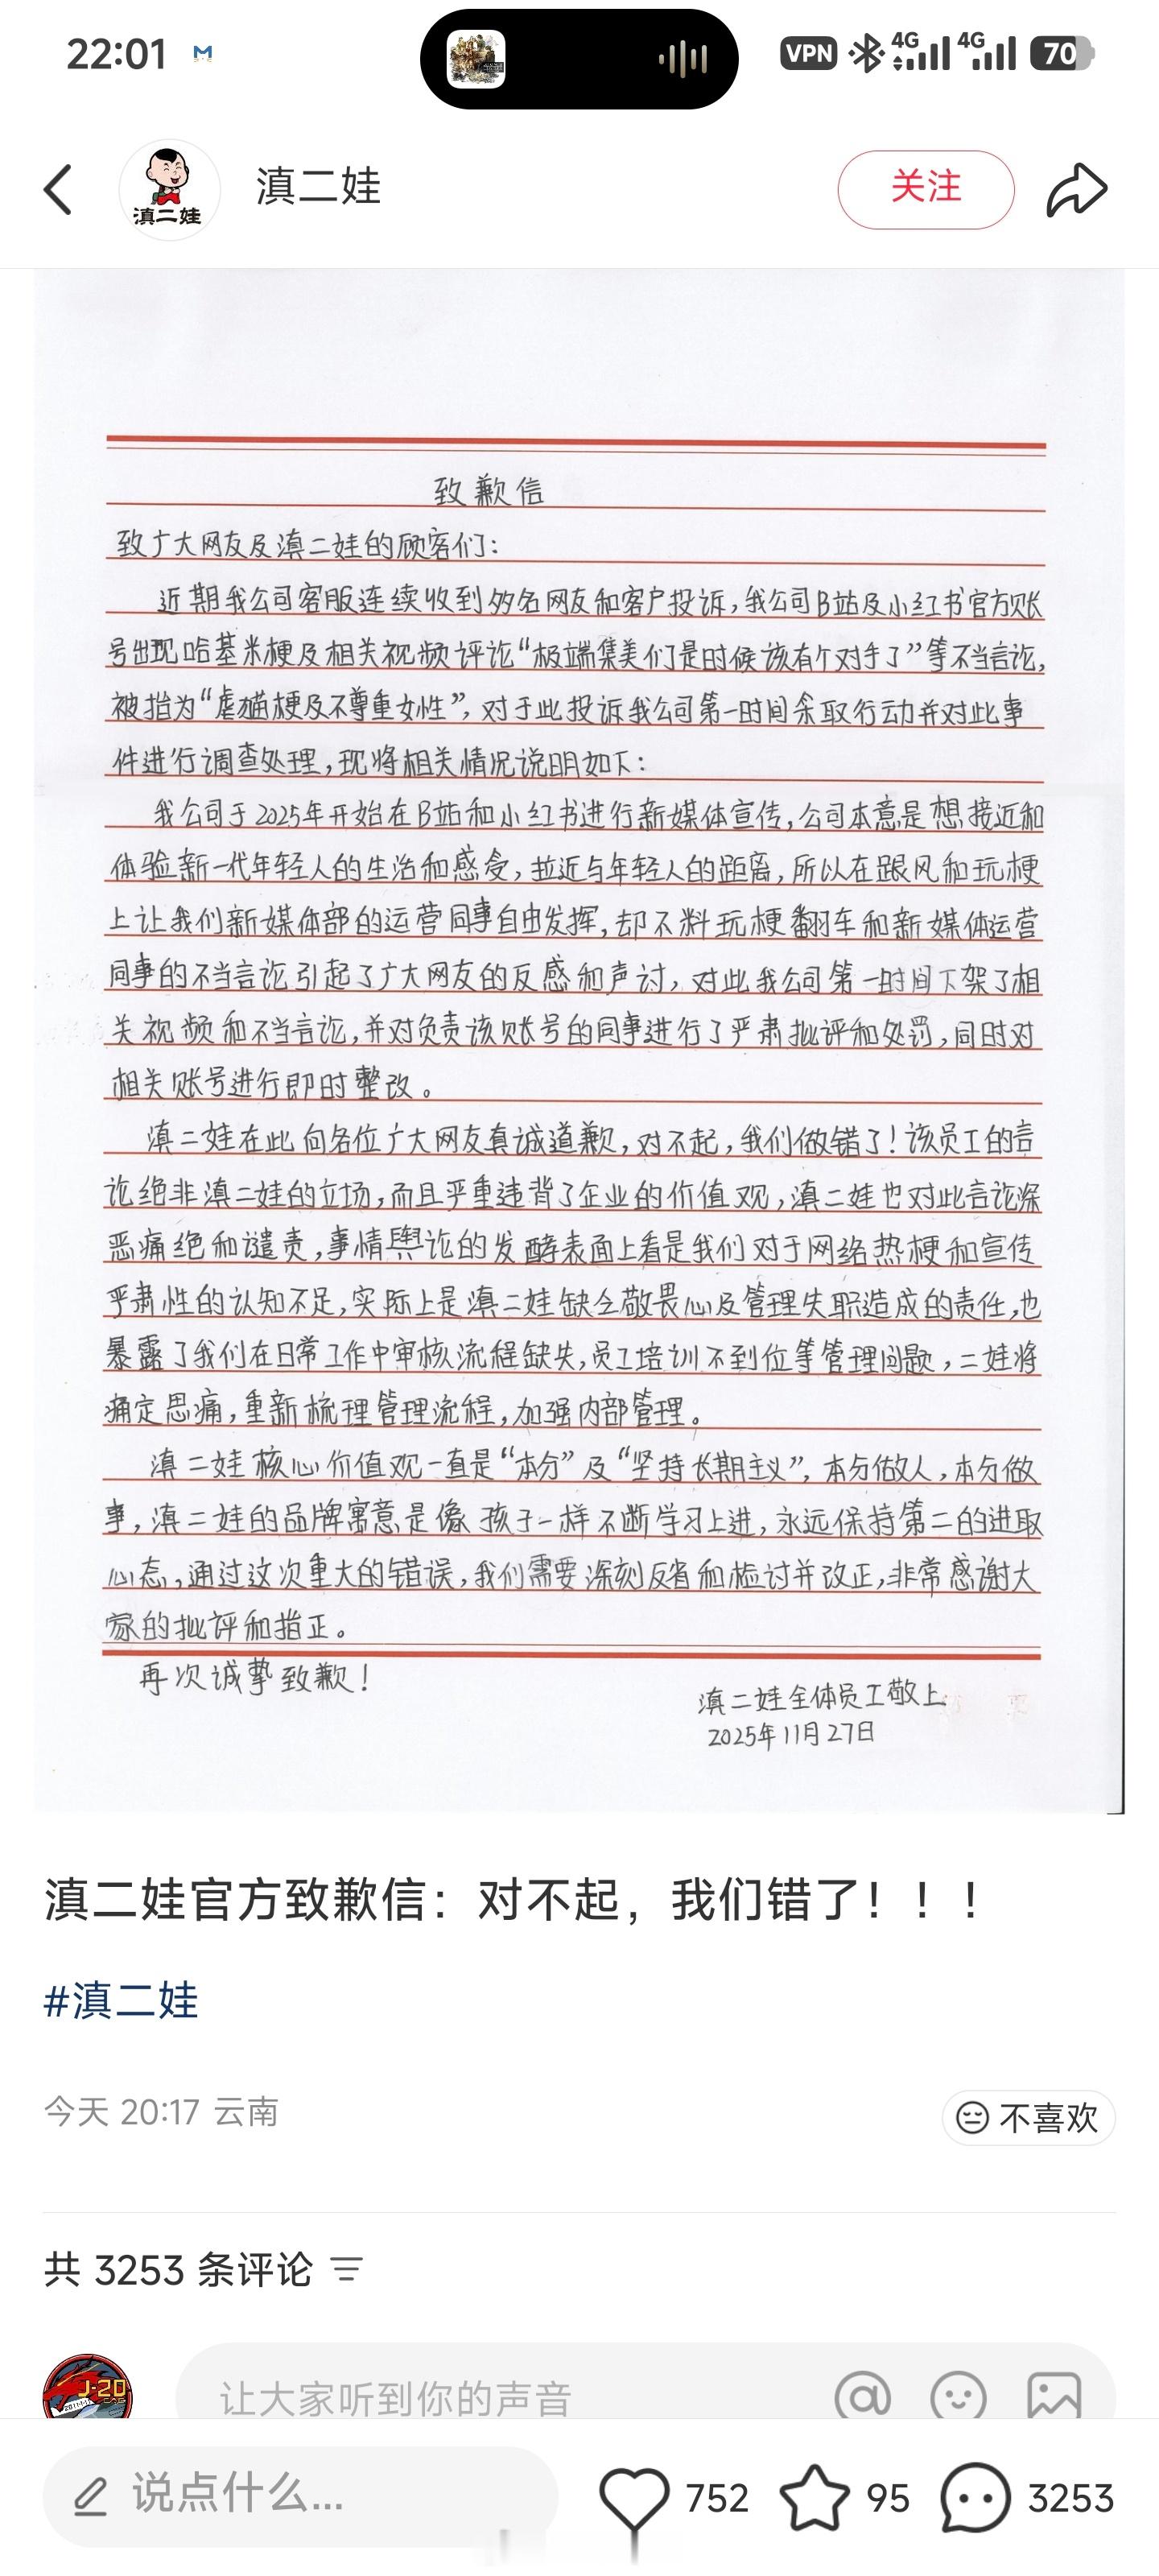 22:01
VPN 4G 4G 70
滇二娃
滇二娃
关注
致歉信
致广大网友及滇二娃的顾客们：
近期我公司客服连续收到多名网友和客户投诉，我公司B站及小红书官方账
号出现哈基米梗及相关视频评论“极端集美们是时候该有个对手了”等不当言论，
被指为“虐猫梗及不尊重女性”，对于此投诉我公司第一时间采取行动并对此事
件进行调查处理，现将相关情况说明如下：
我公司于2025年开始在B站和小红书进行新媒体宣传，公司本意是想接近和
体验新一代年轻人的生活和感受，拉近与年轻人的距离，所以在跟风和玩梗
上让我们新媒体部的运营同事自由发挥，却不料玩梗翻车和新媒体运营
同事的不当言论引起了广大网友的反感和声讨，对此我公司第一时间下架了相
关视频和不当言论，并对负责该账号的同事进行了严肃批评和处罚，同时对
相关账号进行即时整改。
滇二娃在此向各位广大网友真诚道歉，对不起，我们做错了！该员工的言
论绝非滇二娃的立场，而且严重违背了企业的价值观，滇二娃也对此言论深
恶痛绝和谴责，事情舆论的发酵表面上看是我们对于网络热梗和宣传
严肃性的认知不足，实际上是滇二娃缺乏敬畏心及管理失职造成的责任，也
暴露了我们在日常工作中审核流程缺失，员工培训不到位等管理问题，二娃将
痛定思痛，重新梳理管理流程，加强内部管理。
滇二娃核心价值观一直是“本分”及“坚持长期主义”，本分做人，本分做
事，滇二娃的品牌寓意是像孩子一样不断学习上进，永远保持第二的进取
心态，通过这次重大的错误，我们需要深刻反省和检讨并改正，非常感谢大
家的批评和指正。
再次诚挚致歉！
滇二娃全体员工敬上
2025年11月27日
滇二娃官方致歉信：对不起，我们错了！！！
#滇二娃
今天 20:17 云南
不喜欢
共 3253 条评论
J-20
让大家听到你的声音
说点什么...
752
95
3253